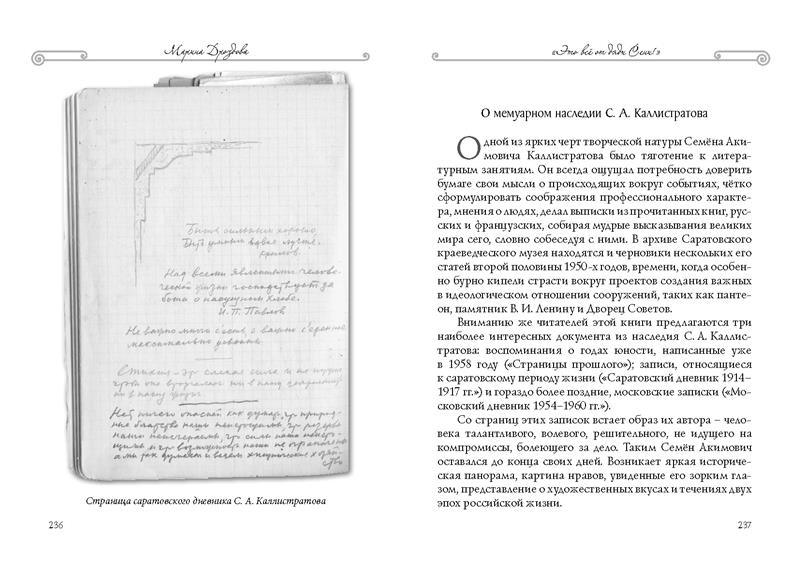 Марина Дроздова
Быть сильным хорошо,
Быть умным вдвое лучше.
Крылов.
Над всеми явлениями челове-
ческой жизни господствует за
бота о насущном хлебе.
И. П. Павлов
Не важно много съесть, а важно съеденное
максимально усвоить.
Стихия - эр слепая сила и не
Нет ничего опасней как думать, что природ-
ные богатства наши неисчерпаемы,
наши неисчерпаемы, эр силы наши
Страница саратовского дневника С. А. Каллистратова
236
«Это всё от дяди Сени!»
О мемуарном наследии С. А. Каллистратова
Одной из ярких черт творческой натуры Семёна Аки-
мовича Каллистратова было тяготение к литера-
турным занятиям. Он всегда ощущал потребность доверить
бумаге свои мысли о происходящих вокруг событиях, чётко
сформулировать соображения профессионального характе-
ра, мнения о людях, делал выписки из прочитанных книг, рус-
ских и французских, собирая мудрые высказывания великих
мира сего, словно собеседуя с ними. В архиве Саратовского
краеведческого музея находятся и черновики нескольких его
статей второй половины 1950-х годов, времени, когда особен-
но бурно кипели страсти вокруг проектов создания важных
в идеологическом отношении сооружений, таких как панте-
он, памятник В. И. Ленину и Дворец Советов.
Вниманию же читателей этой книги предлагаются три
наиболее интересных документа из наследия С. А. Каллис-
тратова: воспоминания о годах юности, написанные уже
в 1958 году («Страницы прошлого»); записи, относящиеся
к саратовскому периоду жизни («Саратовский дневник 1914–
1917 гг.») и гораздо более поздние, московские записки («Мо-
сковский дневник 1954–1960 гг.»).
Со страниц этих записок встает образ их автора – чело-
века талантливого, волевого, решительного, не идущего на
компромиссы, болеющего за дело. Таким Семён Акимович
оставался до конца своих дней. Возникает яркая историче-
ская панорама, картина нравов, увиденные его зорким гла-
зом, представление о художественных вкусах и течениях двух
эпох российской жизни.
237